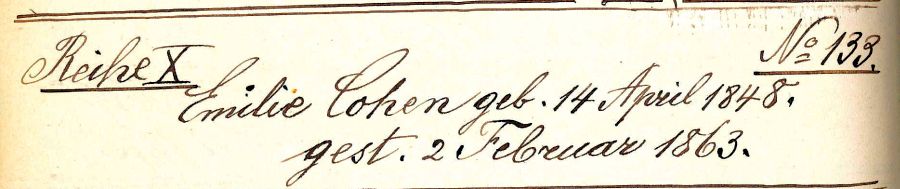 Reihe X
No 133.
Emilie Cohen geb. 14 April 1848.
gest. 2 Februar 1863.